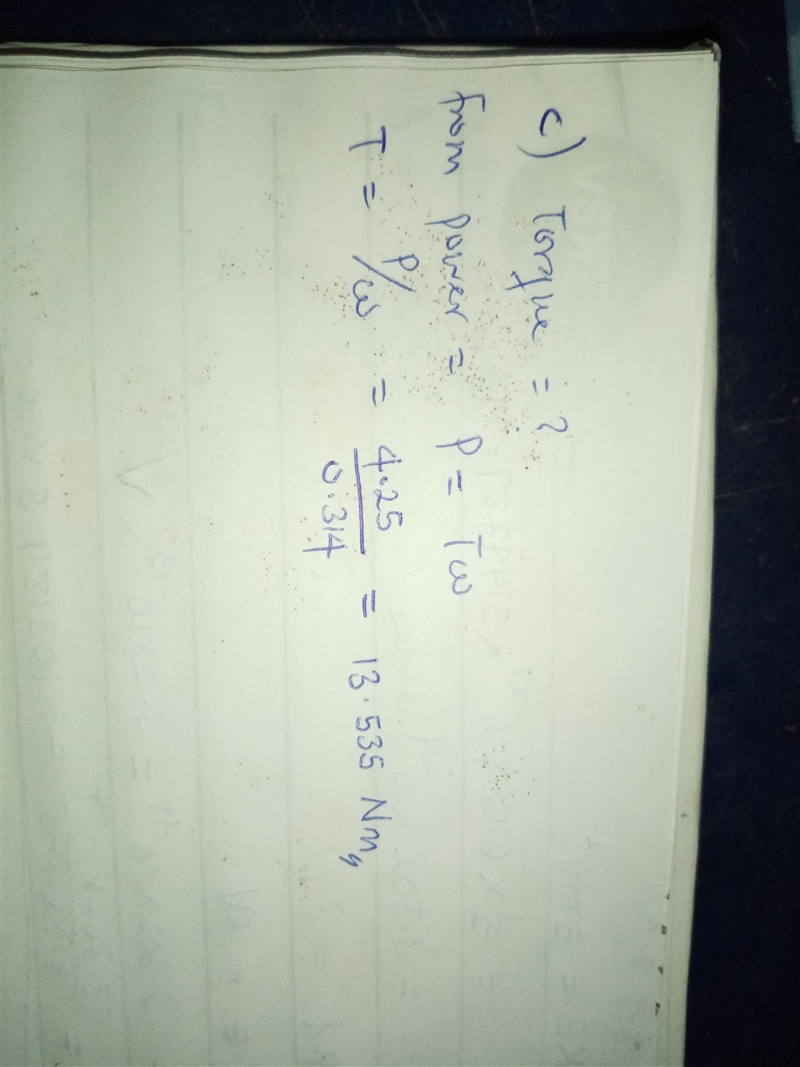 c) Torque = ?
from power = P = Tω
T = P/ω = 4.25/0.314 = 13.535 Nm,,